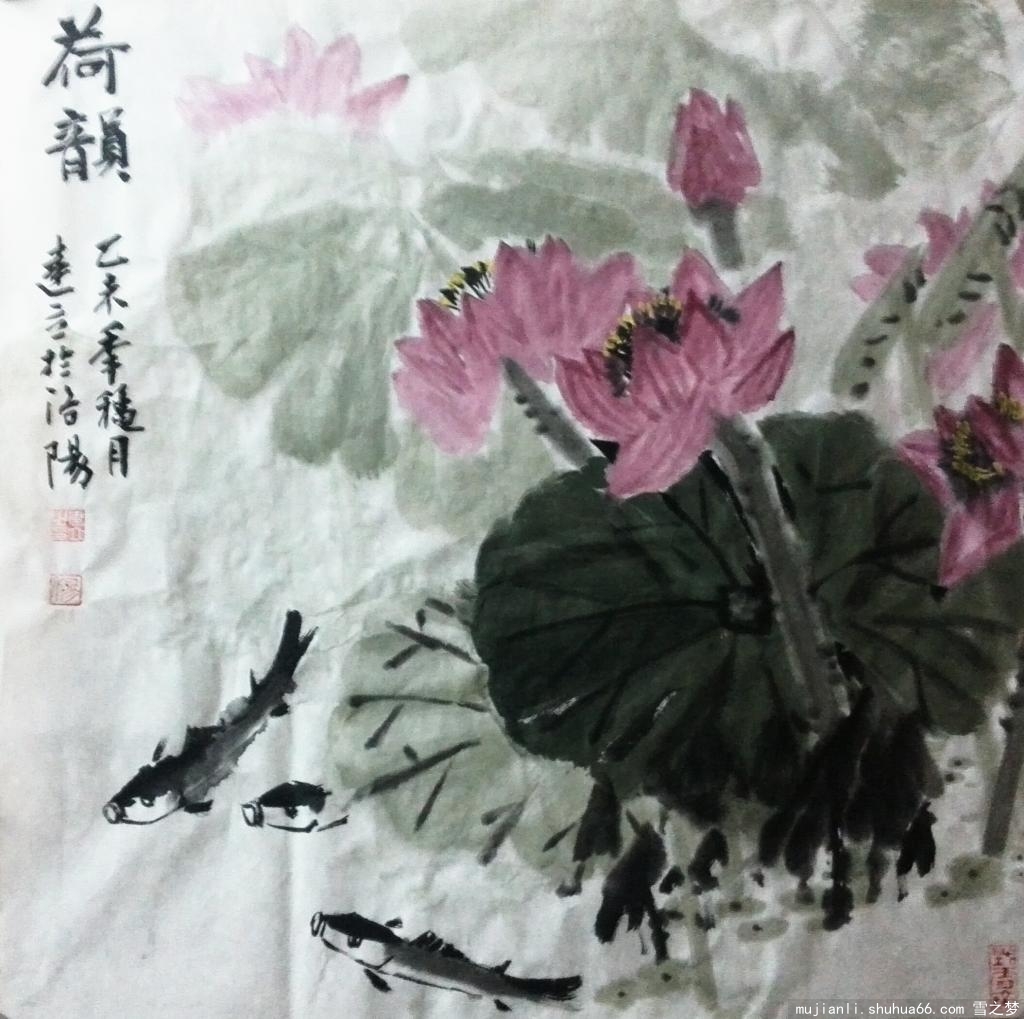 荷韻
乙未年穐月
建立於洛陽
mujianli.shuhua66.com 雪之梦